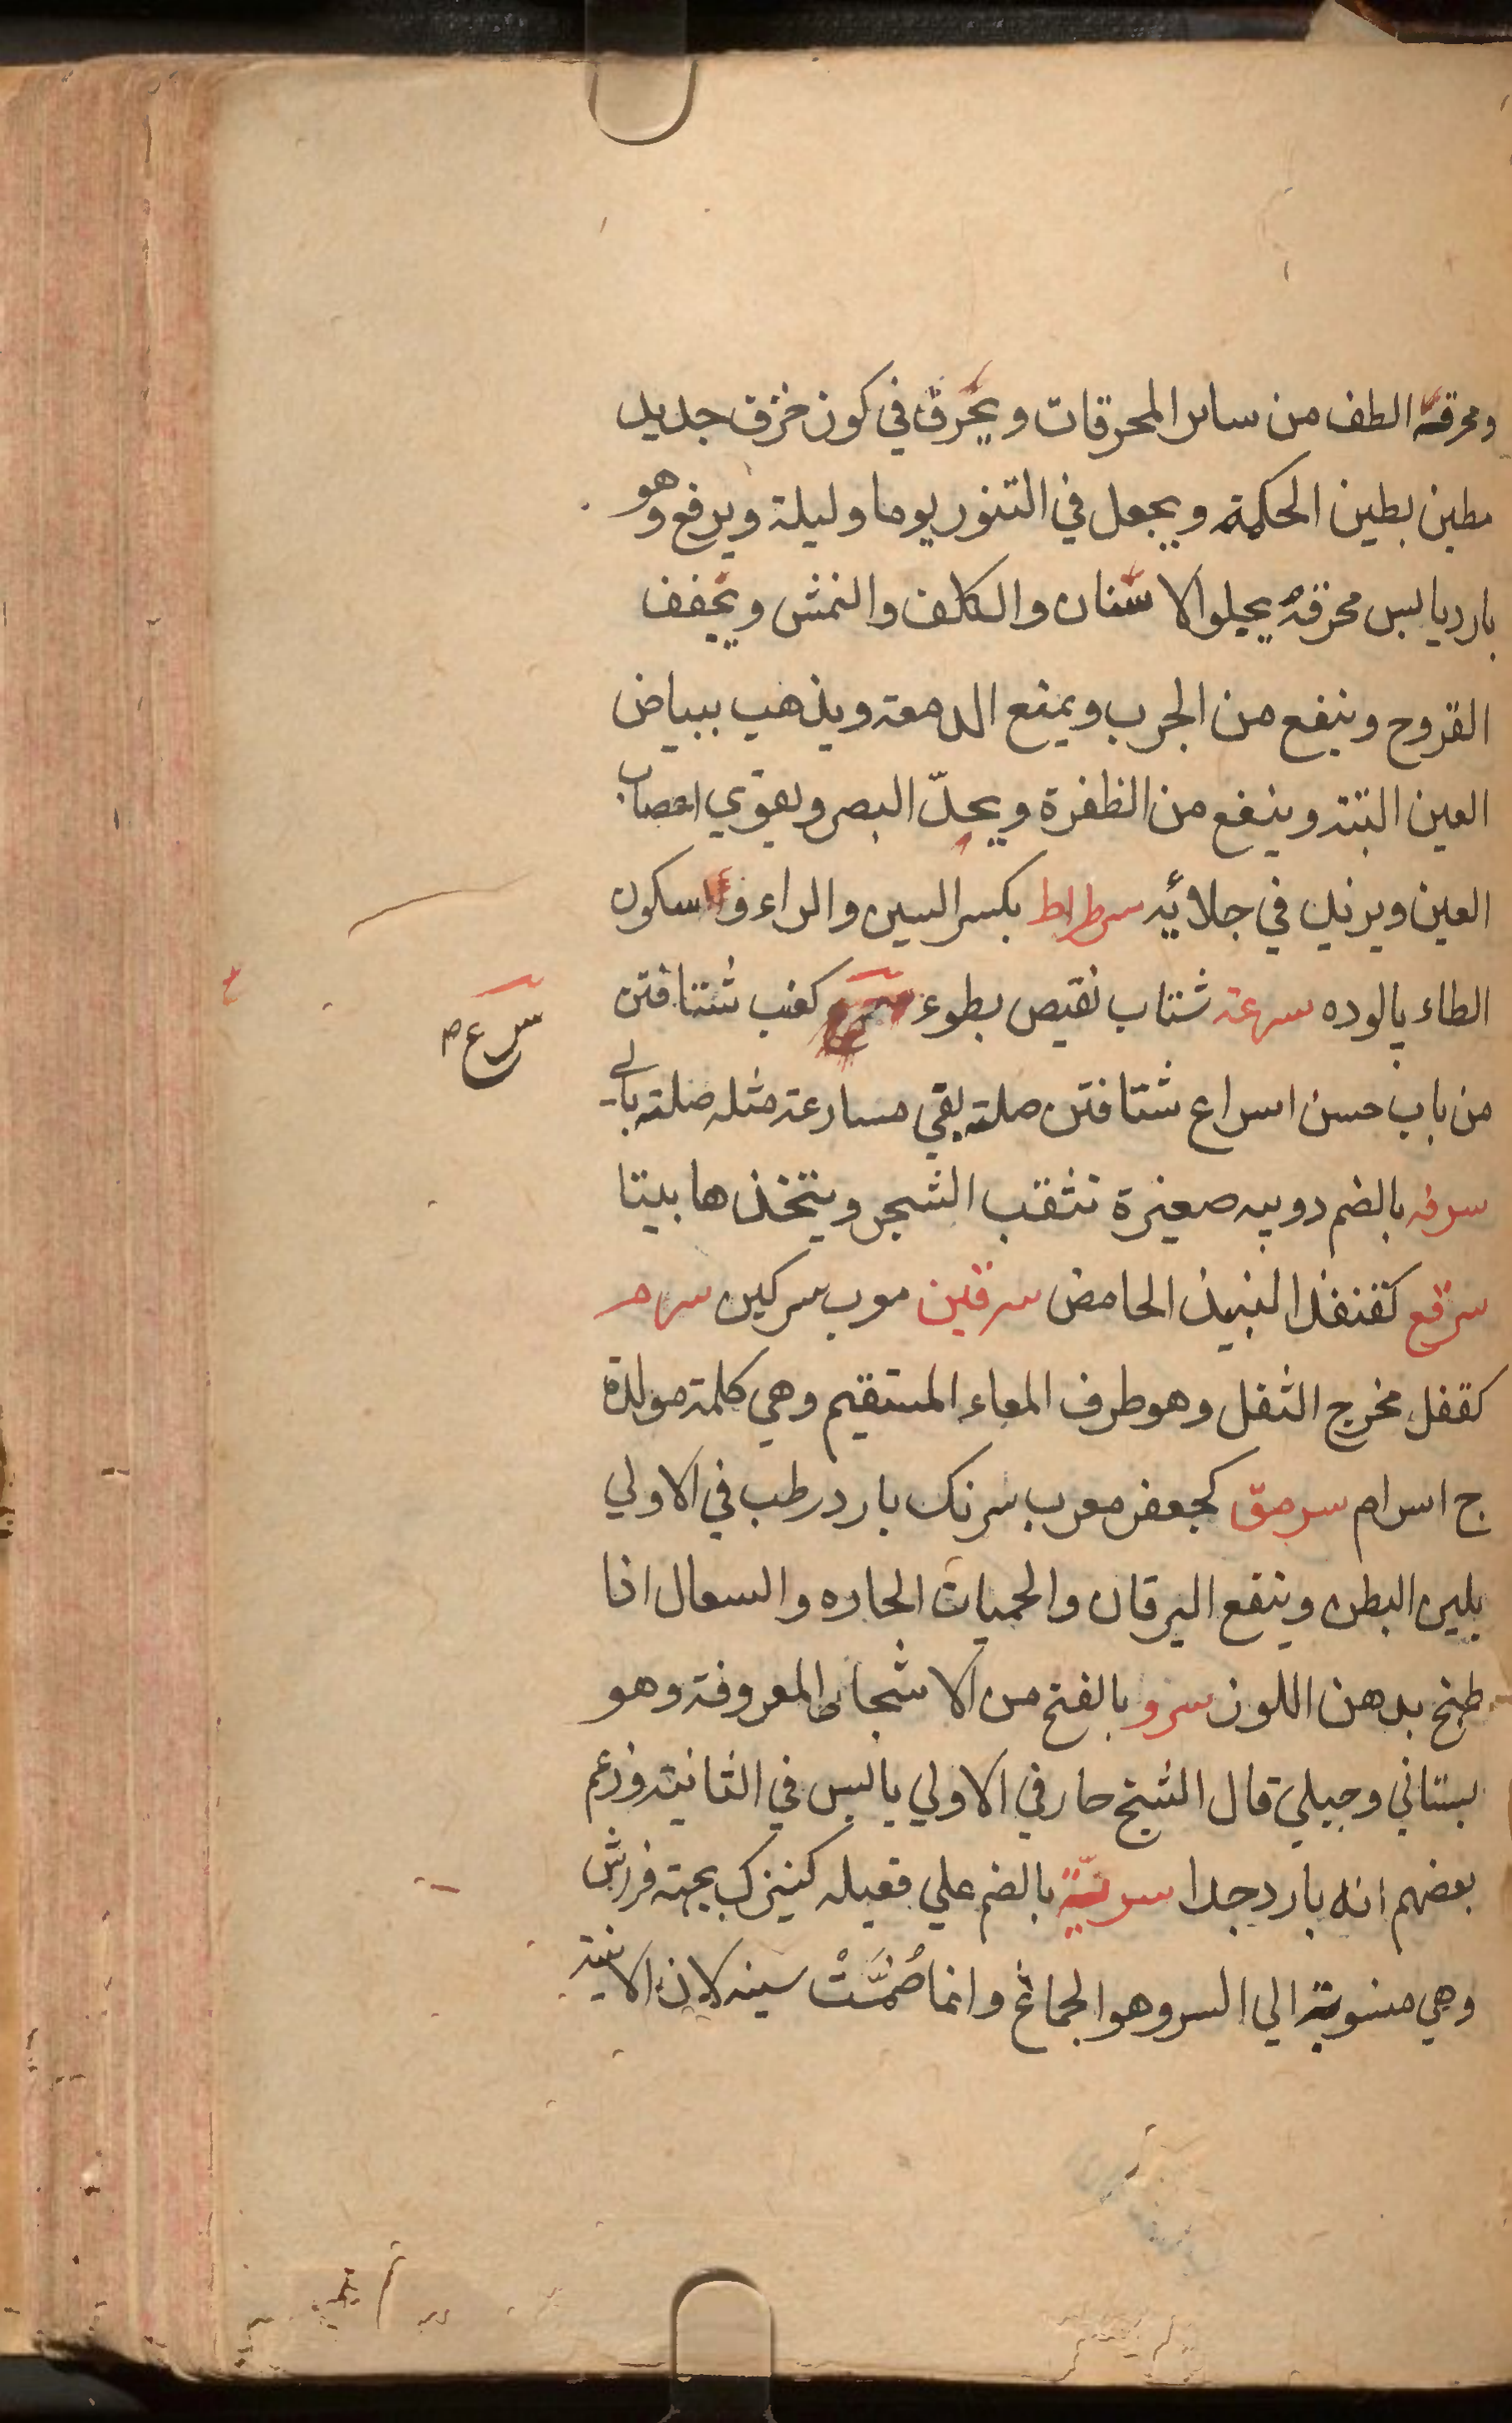 ومحرقه الطف من سائر المحرقات ويحرق في كوز خزف جديد
مطين بطين الحكمة ويجعل في التنور يوما وليلة ويرفع وهو
بارد يابس محرقه يجلو الاسنان والكلف والنمش ويجفف
القروح وينفع من الجرب ويمنع الدمعة ويذهب ببياض
العين البتة وينفع من الظفرة ويحدّ البصر ويقوي اعصاب
العين ويزيد في جلائه سرطراط بكسر السين والراء و سكون
الطاء پالوده سرعة شتاب نقيص بطوء كعنب شتافتن
س ع م
من باب حسن اسراع شتافتن صلته بفي مسارعة مثله صلته بالي
سرفه بالضم دويبه صغيرة تثقب الشجر ويتخذها بيتا
سرقع كقنفذ النبيذ الحامض سرقين معرب سركين سرم
كقفل مخرج الثفل وهو طرف المعاء المستقيم وهي كلمة مولدة
ج اسرام سرمق كجعفر معرب سرنك بارد رطب في الاولي
يلين البطن وينفع اليرقان والحميات الحاره والسعال اذا
طبخ بدهن اللوز سرو بالفتح من الاشجار المعروفة وهو
بستاني وجبلي قال الشيخ حار في الاولي يابس في الثانية وزعم
بعضهم انه بارد جدا سريّة بالضم علي فعيله كنيزك بجهته فراش
وهي منسوبة الي السر وهو الجماع وانما ضُمَّتْ سينه لان الابنية